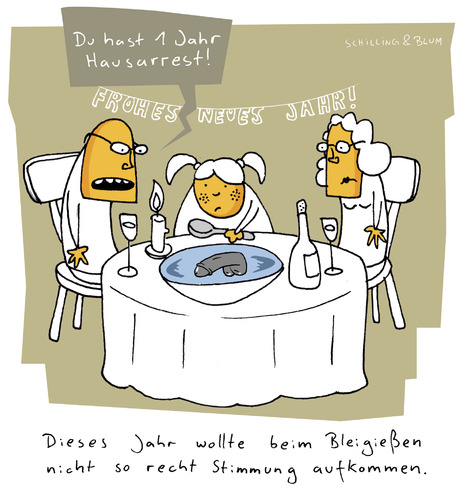 Du hast 1 Jahr
Hausarrest!
SCHILLING & BLUM
FROHES NEUES JAHR!
Dieses Jahr wollte beim Bleigießen
nicht so recht Stimmung aufkommen.